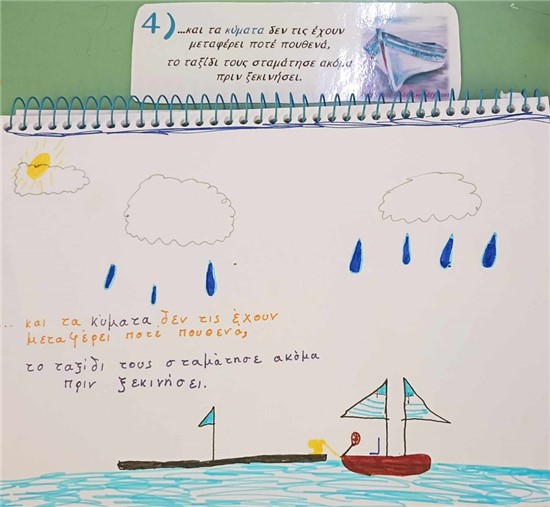 4) ...και τα κύματα δεν τις έχουν
μεταφέρει ποτέ πουθενά,
το ταξίδι τους σταμάτησε ακόμα
πριν ξεκινήσει.
... και τα κύματα δεν τις έχουν
μεταφέρει ποτέ πουθενά,
το ταξίδι τους σταμάτησε ακόμα
πριν ξεκινήσει.